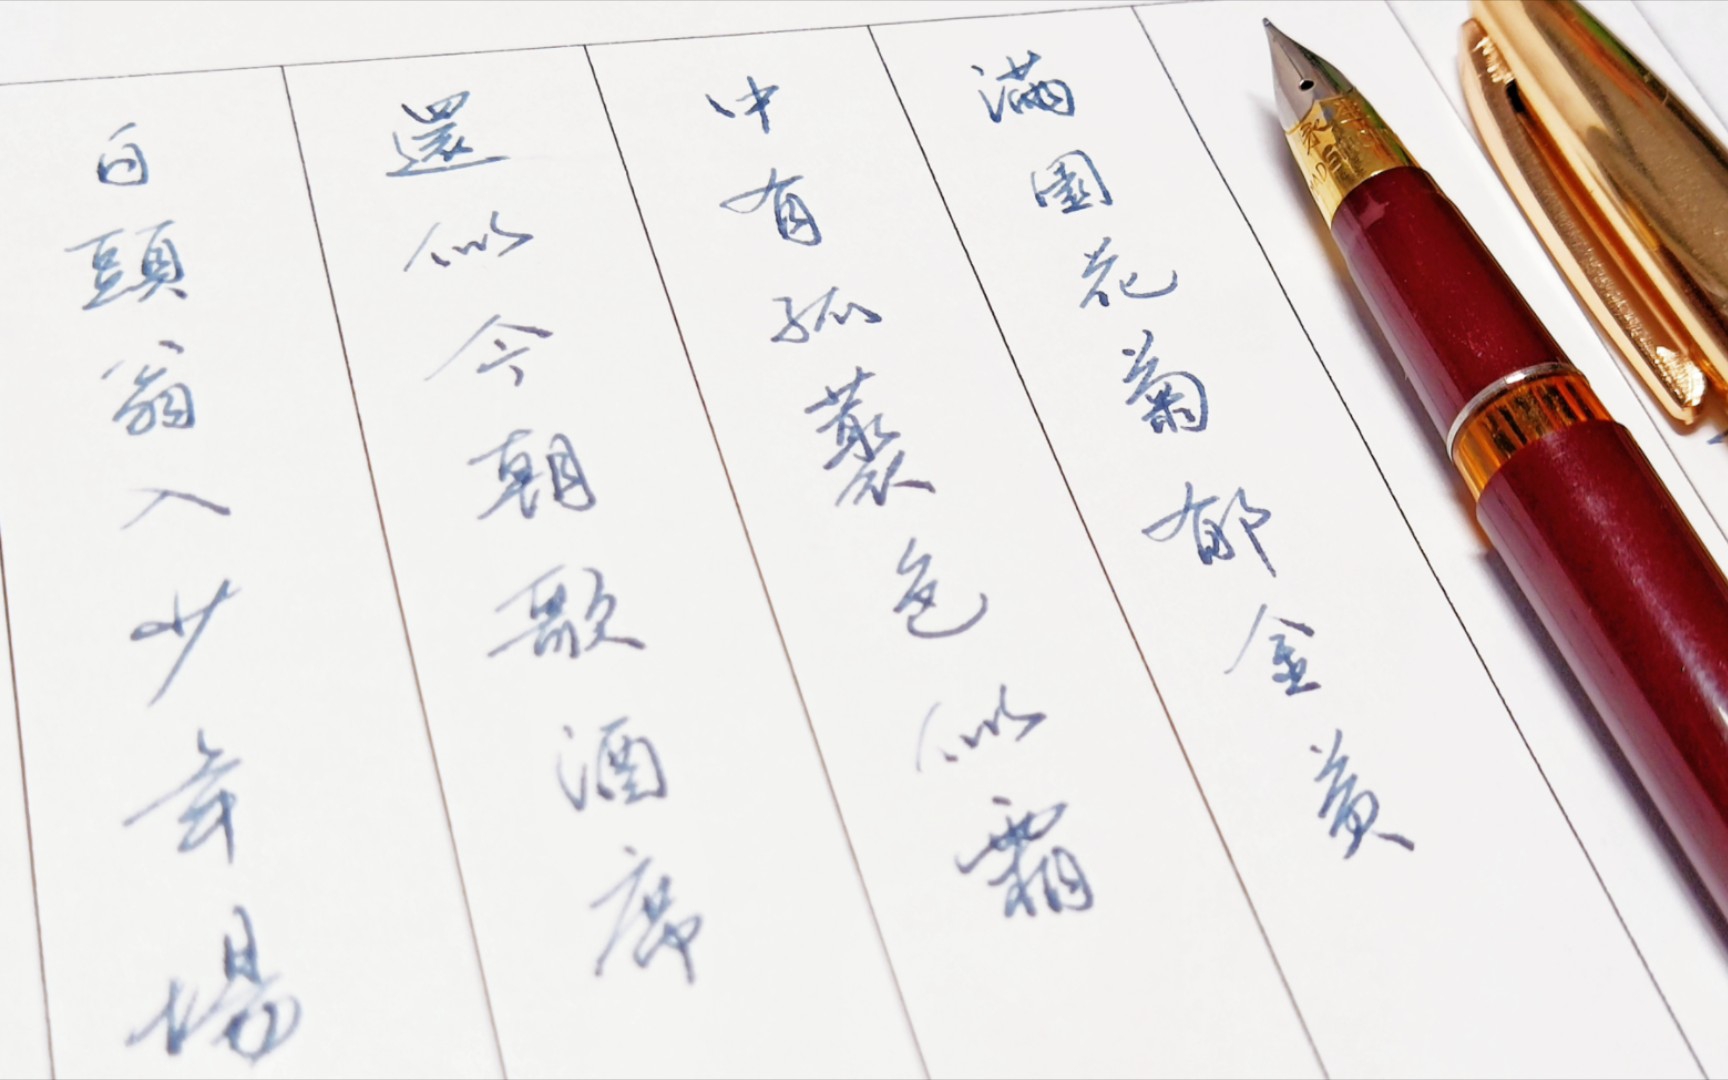 滿園花菊郁金黃
中有孤叢色似霜
還似今朝歌酒席
白頭翁入少年場
永